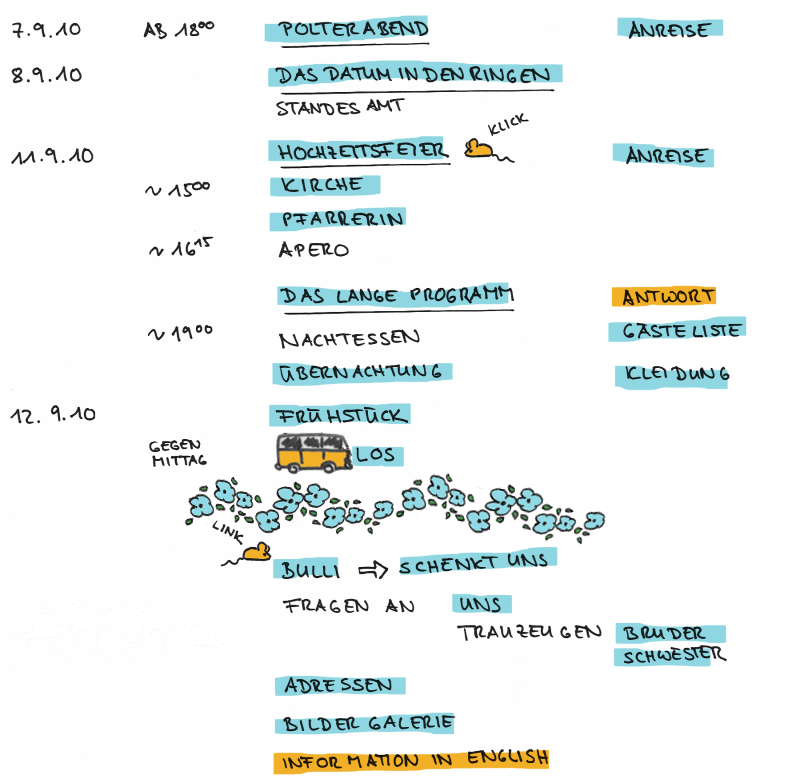 7.9.10 AB 18⁰⁰ POLTERABEND ANREISE
8.9.10 DAS DATUM IN DEN RINGEN
STANDESAMT
KLICK
11.9.10 HOCHZEITSFEIER ANREISE
~ 15⁰⁰ KIRCHE
PFARRERIN
~ 16¹⁵ APERO
DAS LANGE PROGRAMM ANTWORT
~ 19⁰⁰ NACHTESSEN GÄSTELISTE
ÜBERNACHTUNG KLEIDUNG
12.9.10 FRÜHSTÜCK
GEGEN MITTAG LOS
LINK
BULLI ⇒ SCHENKT UNS
FRAGEN AN UNS
TRAUZEUGEN BRUDER
SCHWESTER
ADRESSEN
BILDER GALERIE
INFORMATION IN ENGLISH